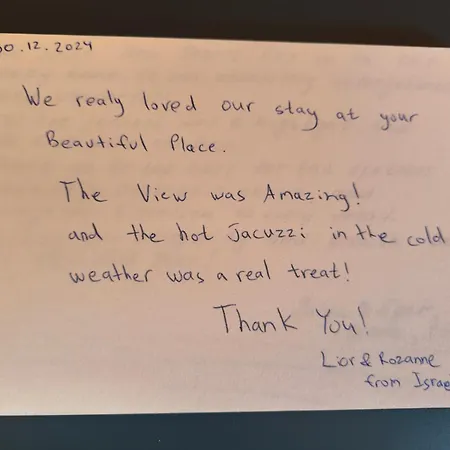 0.12.2024
We realy loved our stay at your
Beautiful Place.
The View was Amazing!
and the hot Jacuzzi in the cold
weather was a real treat!
Thank You!
Lior & Rozanne
from Israe